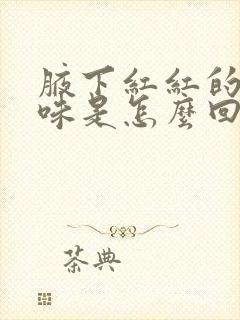 腋下紅紅的
味是怎麼回
茶典